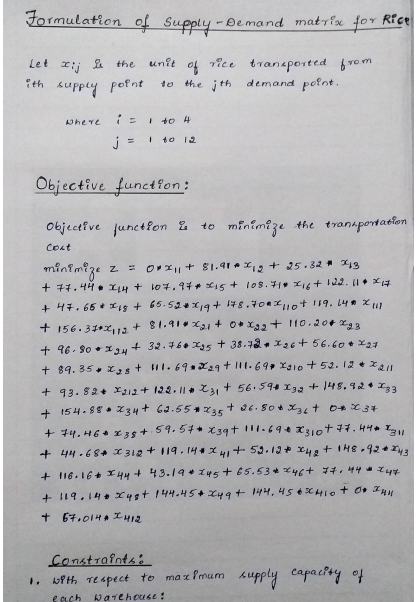 Formulation of Supply-Demand matrix for Rice
Let xij is the unit of rice transported from
ith supply point to the jth demand point.
where i = 1 to 4
j = 1 to 12
Objective function:
Objective function is to minimize the transportation
cost
minimize z = 0*x11 + 81.91*x12 + 25.32*x13
+ 77.44*x14 + 107.97*x15 + 108.71*x16 + 122.11*x17
+ 47.65*x18 + 65.52*x19 + 178.70*x110 + 119.14*x111
+ 156.37*x112 + 81.91*x21 + 0*x22 + 110.20*x23
+ 96.80*x24 + 32.76*x25 + 38.72*x26 + 56.60*x27
+ 89.35*x28 + 111.69*x29 + 111.69*x210 + 52.12*x211
+ 93.82*x212 + 122.11*x31 + 56.59*x32 + 148.92*x33
+ 154.88*x34 + 62.55*x35 + 26.80*x36 + 0*x37
+ 74.46*x38 + 59.57*x39 + 111.69*x310 + 77.44*x311
+ 44.68*x312 + 119.14*x41 + 52.12*x42 + 148.92*x43
+ 116.16*x44 + 43.19*x45 + 65.53*x46 + 77.44*x47
+ 119.14*x48 + 144.45*x49 + 144.45*x410 + 0*x411
+ 67.014*x412
Constraints:
1. With respect to maximum supply capacity of
each warehouse: